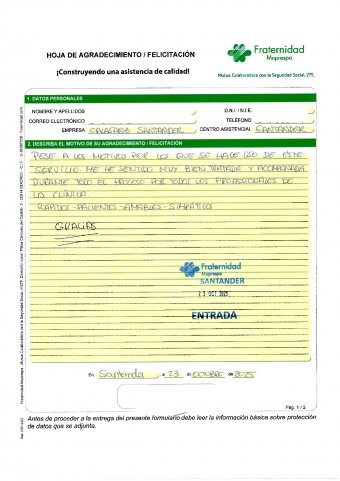 HOJA DE AGRADECIMIENTO / FELICITACIÓN
¡Construyendo una asistencia de calidad!
Fraternidad
Muprespa
Mutua Colaboradora con la Seguridad Social, 275.
1. DATOS PERSONALES
NOMBRE Y APELLIDOS
D.N.I. / N.I.E.
CORREO ELECTRÓNICO
TELÉFONO
EMPRESA SANTANDER
CENTRO ASISTENCIAL SANTANDER
2. DESCRIBA EL MOTIVO DE SU AGRADECIMIENTO / FELICITACIÓN
PESE A LOS MOTIVOS POR LOS QUE SE HACE USO DE ESTE
SERVICIO ME HE SENTIDO MUY BIEN TRATADA Y ACOMPAÑADA
DURANTE TODO EL PROCESO POR TODOS LOS PROFESIONALES DE
LA CLÍNICA
RÁPIDOS - PACIENTES - AMABLES - SIMPÁTICOS
GRACIAS
Fraternidad
Muprespa
SANTANDER
23 OCT 2025
ENTRADA
En Santander a 23 de OCTUBRE de 2025
Pág. 1 / 2
Antes de proceder a la entrega del presente formulario debe leer la información básica sobre protección
de datos que se adjunta.